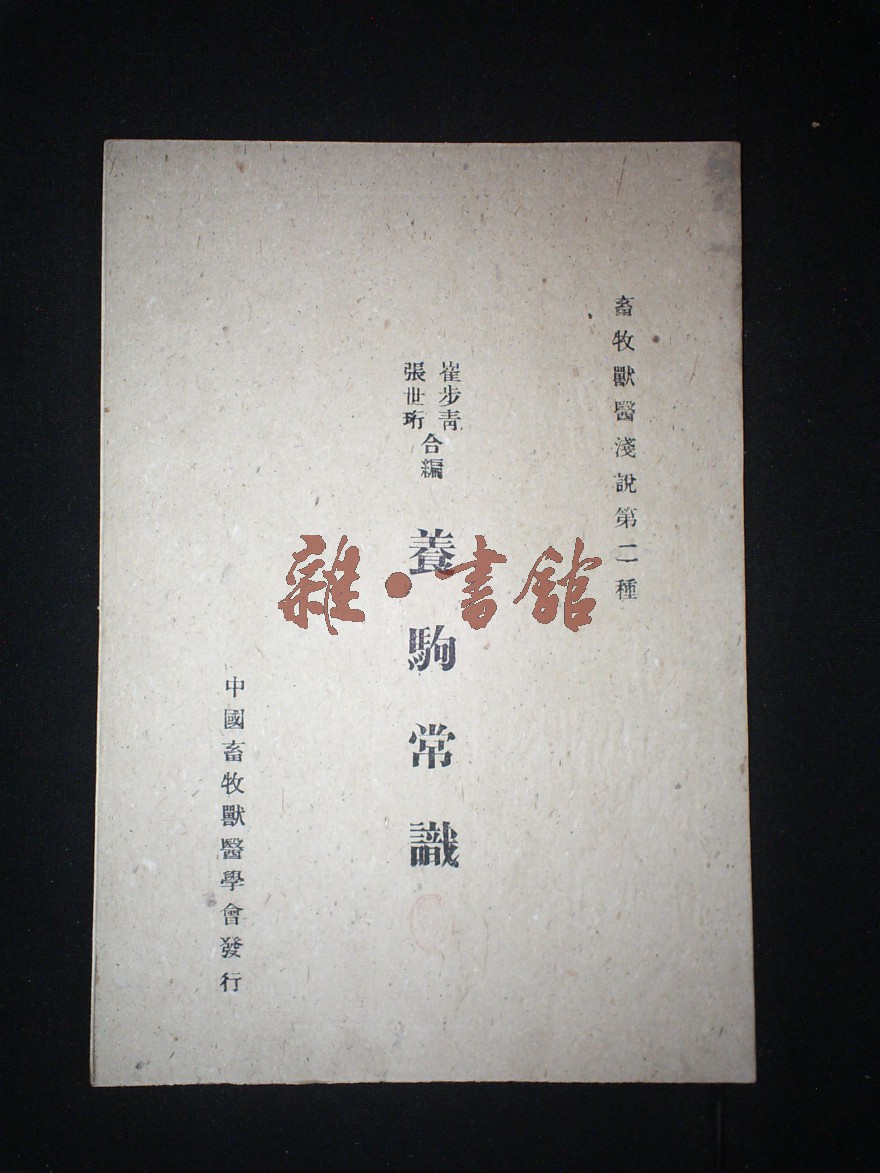 畜牧獸醫淺說第二種
崔步青
張世珩
合編
養駒常識
中國畜牧獸醫學會發行
雜·書館